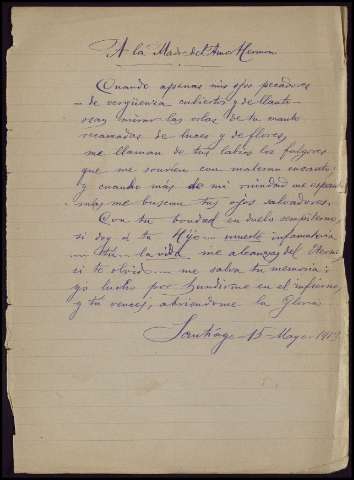 A la Madre del Amor Hermoso
Cuando apenas mis ojos pecadores
— de vergüenza cubiertos y de llanto —
osan mirar las orlas de tu manto
recamadas de luces y de flores,
me llaman de tus labios los fulgores
que me sonríen con materno encanto;
y cuando más de mi ruindad me espanto
más me buscan tus ojos salvadores.
Con tu bondad en duelo sempiterno,
si doy a tu Hijo... muerte infamatoria
... tú... la vida me alcanzas del Eterno;
si te olvido.... me salva tu memoria;
yo lucho por hundirme en el infierno,
y tú vences, abriéndome la Gloria.
Santiago — 15 — Mayo — 1919